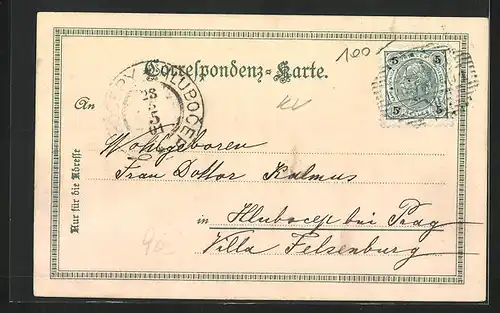 100
Correspondenz-Karte.
5 5
5 5
HLUBOČEPY
28
5
01
An
Wohlgeboren
Frau Doktor Kalmus
in Hlubocep bei Prag
Villa Felsenburg
Nur für die Adresse
90